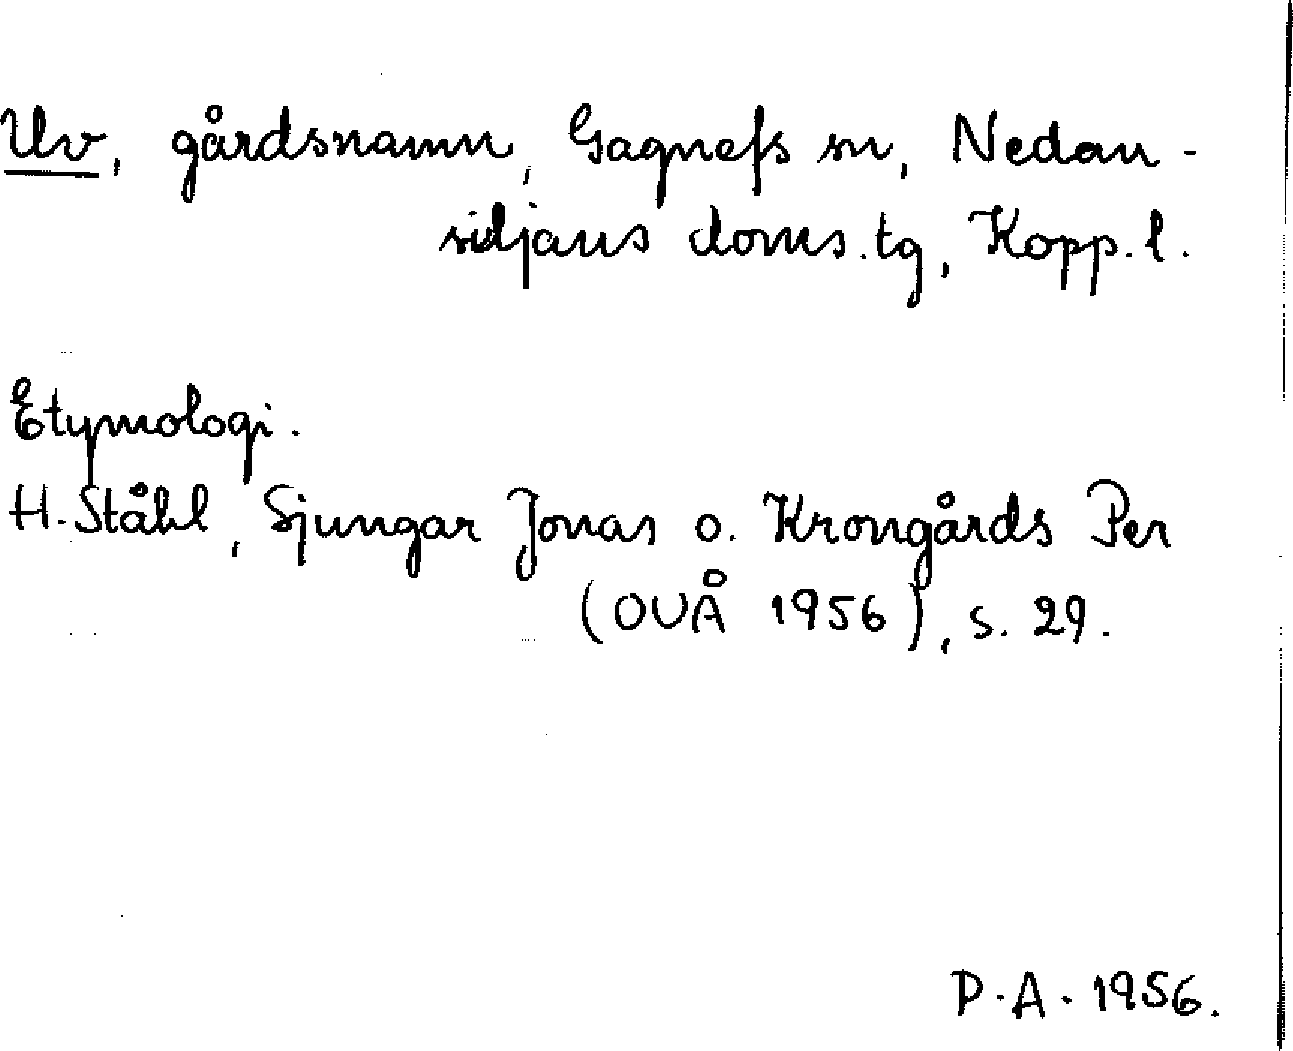 Uv, gårdsnamn, Gagnefs sn, Nedan-
siljans doms.tg, Kopp.l.
Etymologi.
H. Ståhl, Sjungar Jonas o. Krongårds Per
(OUÅ 1956), s. 29.
P.A. 1956.